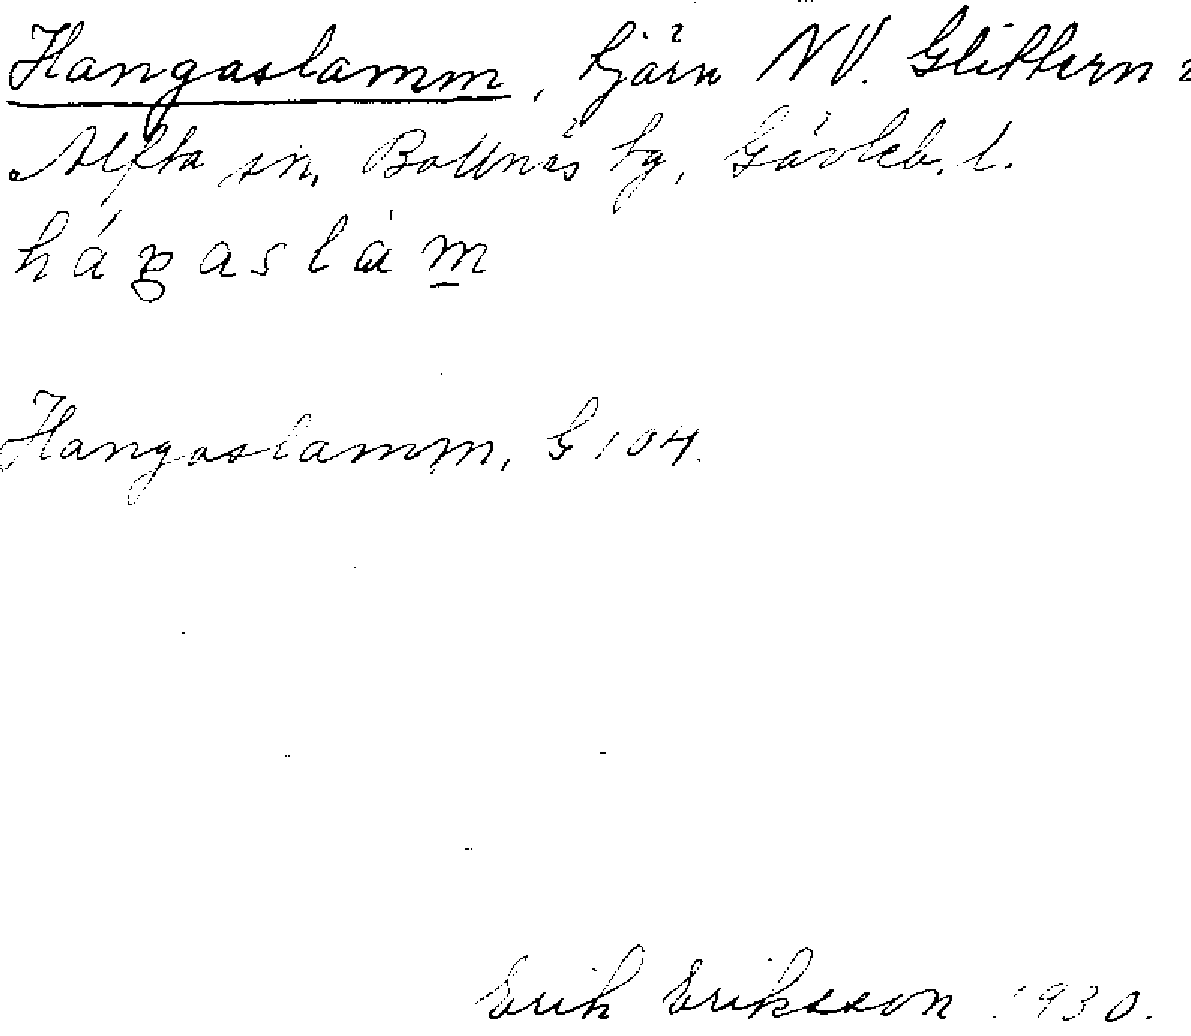 Hangaslamm, tjärn NV. Glittern
Alfta sn, Bollnäs tg, Gävleb. l.
háŋaslàm̲
Hangaslamm, G 104.
Erik Eriksson 1930.